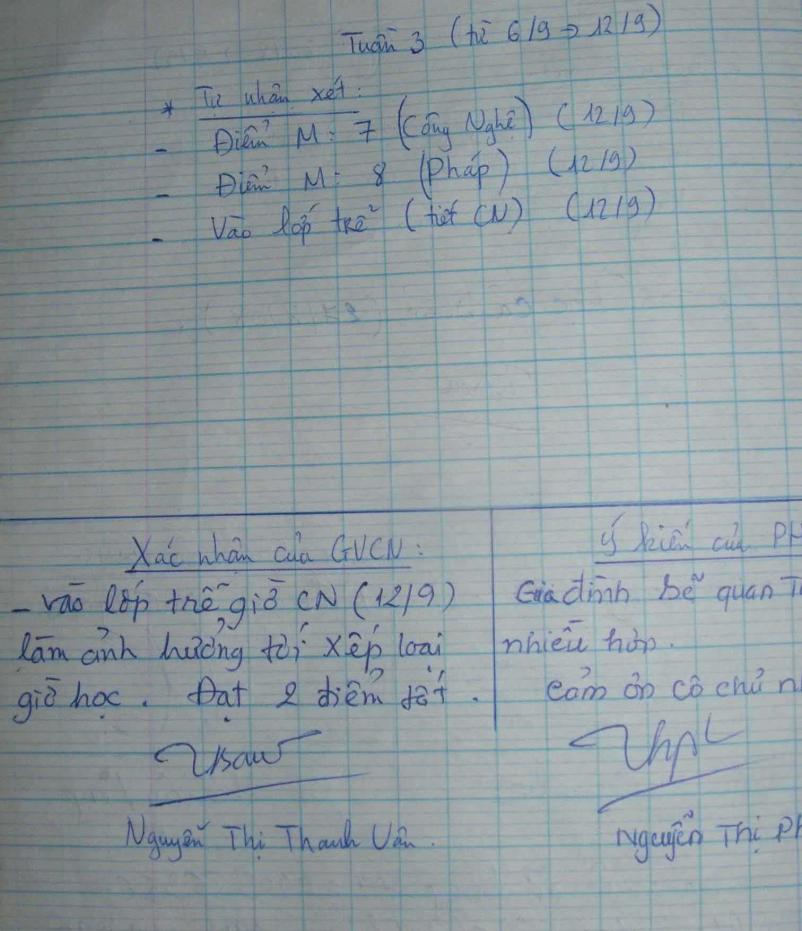 Tuần 3 (từ 6/9 → 12/9)
* Tự nhận xét:
- Điểm M: 7 (Công Nghệ) (12/9)
- Điểm M: 8 (Pháp) (12/9)
- Vào lớp trễ (tiết CN) (12/9)
Xác nhận của GVCN:
- vào lớp trễ giờ CN (12/9)
làm ảnh hưởng tới xếp loại
giờ học. Đạt 2 điểm tốt.
Nguyễn Thị Thanh Vân.
Ý kiến của PH
Gia đình sẽ quan T
nhiều hơn.
Cảm ơn cô chủ n
Nguyễn Thị Ph